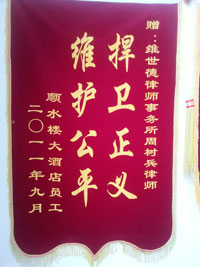 赠：维世德律师事务所周树兵律师
捍卫正义
维护公平
顺水楼大酒店员工
二〇一一年九月